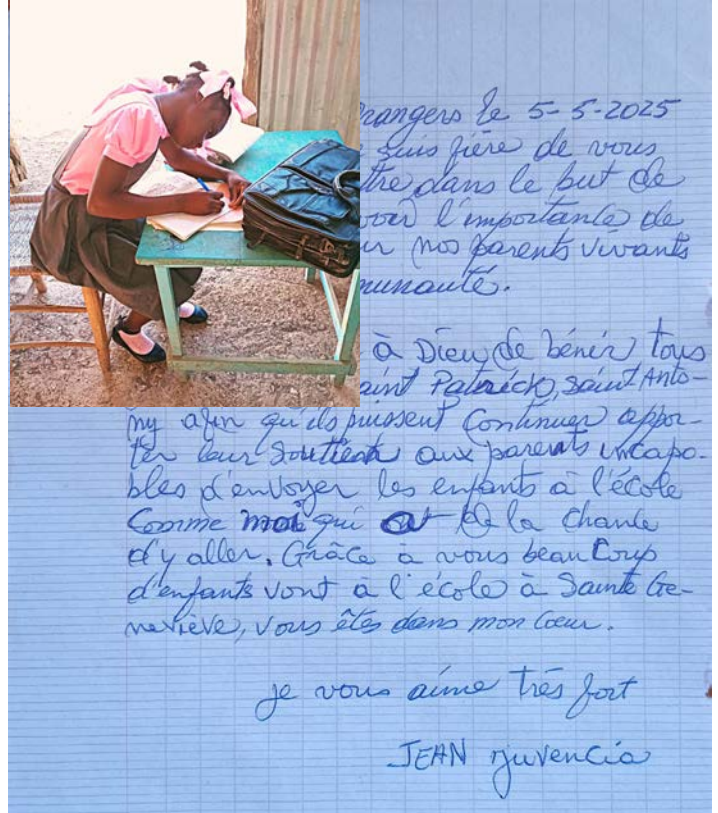 rangers le 5-5-2025
suis fière de vous
ttre dans le but de
voir l'importance de
ur nos parents vivants
munauté.
à Dieu de bénir tous
aint Patrick, saint Anto-
ny afin qu'ils puissent continuer appor-
ter leur soutient aux parents incapa-
bles d'envoyer les enfants à l'école
comme moi qui at de la chance
d'y aller. Grâce à vous beaucoup
d'enfants vont à l'école à Sainte Ge-
neviève, vous êtes dans mon coeur.
je vous aime très fort
JEAN juvencia